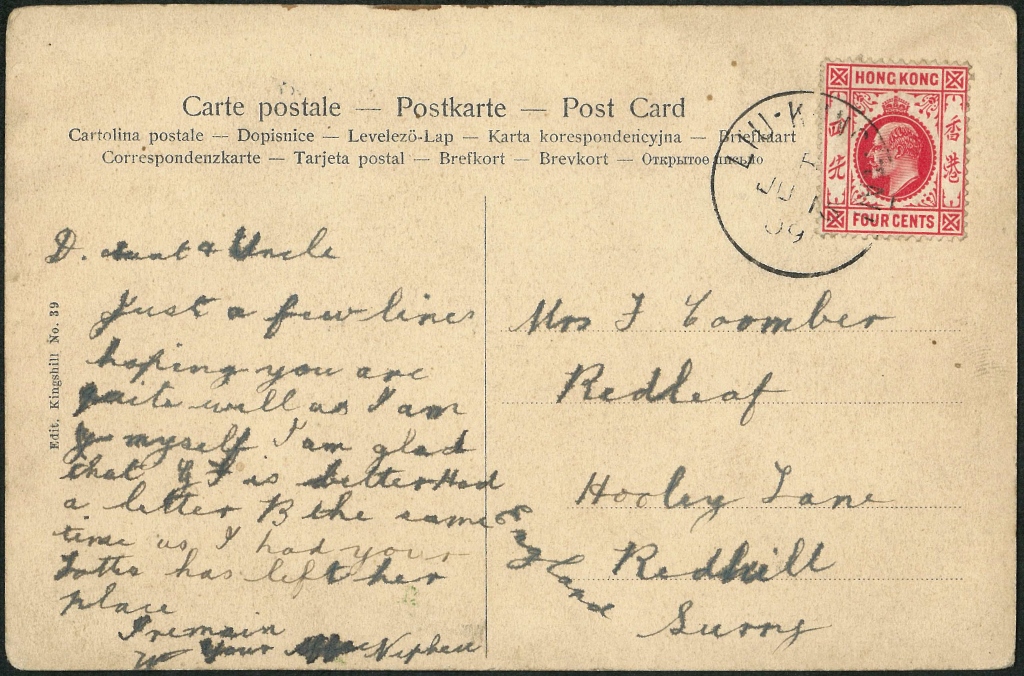 Carte postale — Postkarte — Post Card
Cartolina postale — Dopisnice — Levelező-Lap — Karta korespondencyjna — Briefkaart
Correspondenzkarte — Tarjeta postal — Brefkort — Brevkort — Открытое письмо
HONG KONG
香港
四先
FOUR CENTS
LIU-KUNG
JUN
09
Edit. Kingshill No. 39
D. Aunt & Uncle
Just a few lines
hoping you are
quite well as I am
myself I am glad
that is better Had
a letter B the same
time as I had your
Lotta has left her
place
I remain
Your Nephew
Mrs F Coomber
Redleaf
Hooley Lane
Redhill
Surry
England